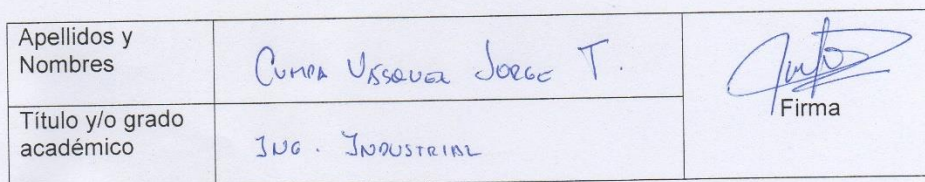 Apellidos y
Nombres
CUMPA VÁSQUEZ JORGE T.
Firma
Título y/o grado
académico
ING. INDUSTRIAL